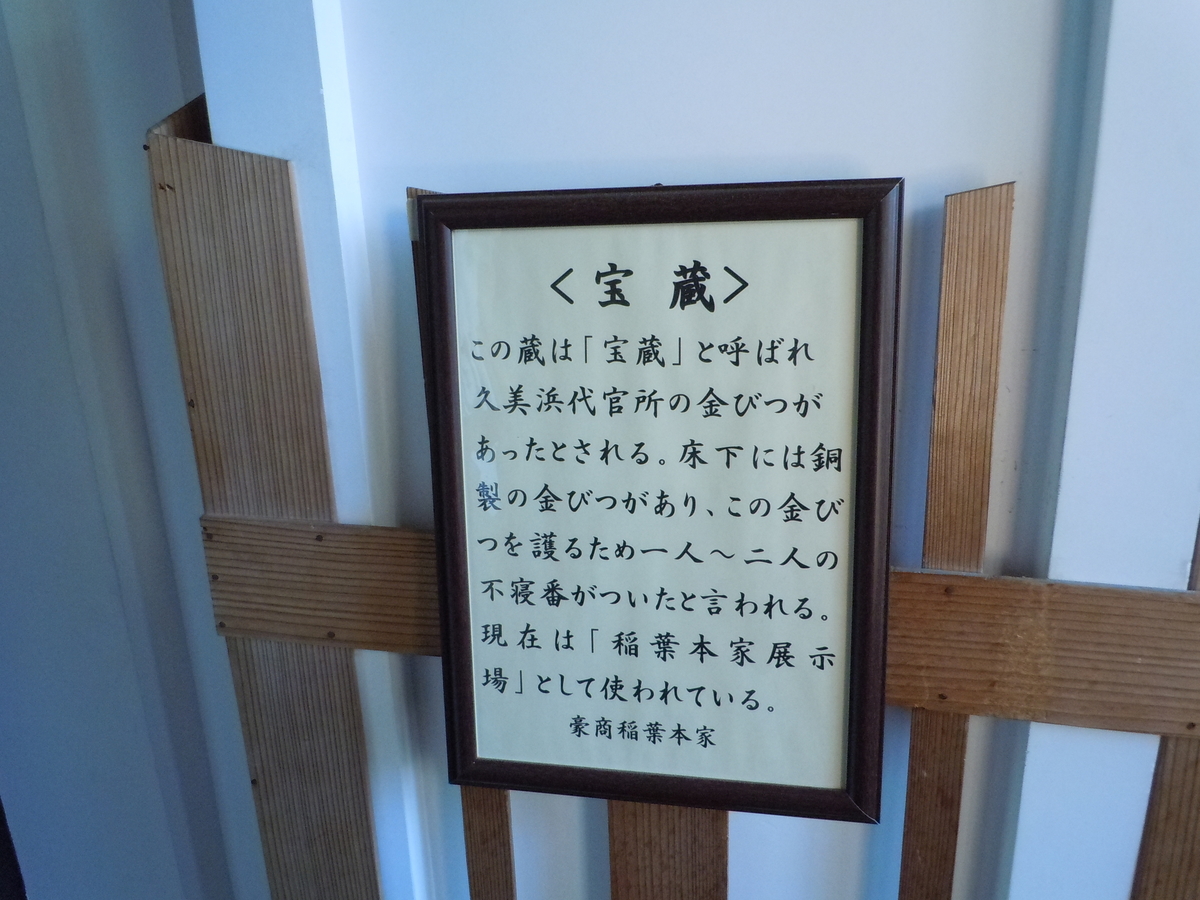 ＜宝 蔵＞
この蔵は「宝蔵」と呼ばれ
久美浜代官所の金びつが
あったとされる。床下には銅
製の金びつがあり、この金び
つを護るため一人～二人の
不寝番がついたと言われる。
現在は「稲葉本家展示
場」として使われている。
豪商稲葉本家